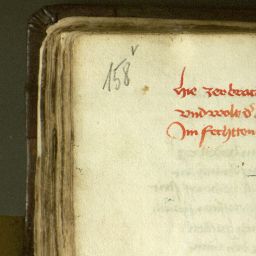 158v
hie zerbrac
vnd wolt d
Im fechtten